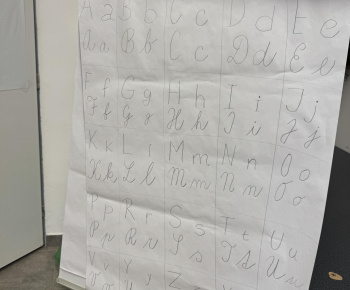 A a B b C c D d E e
A a B b C c D d E e
F f G g H h I i J j
F f G g H h I i J j
K k L l M m N n O o
K k L l M m N n O o
P p R r S s T t U u
P p R r S s T t U u
V v Y y Z